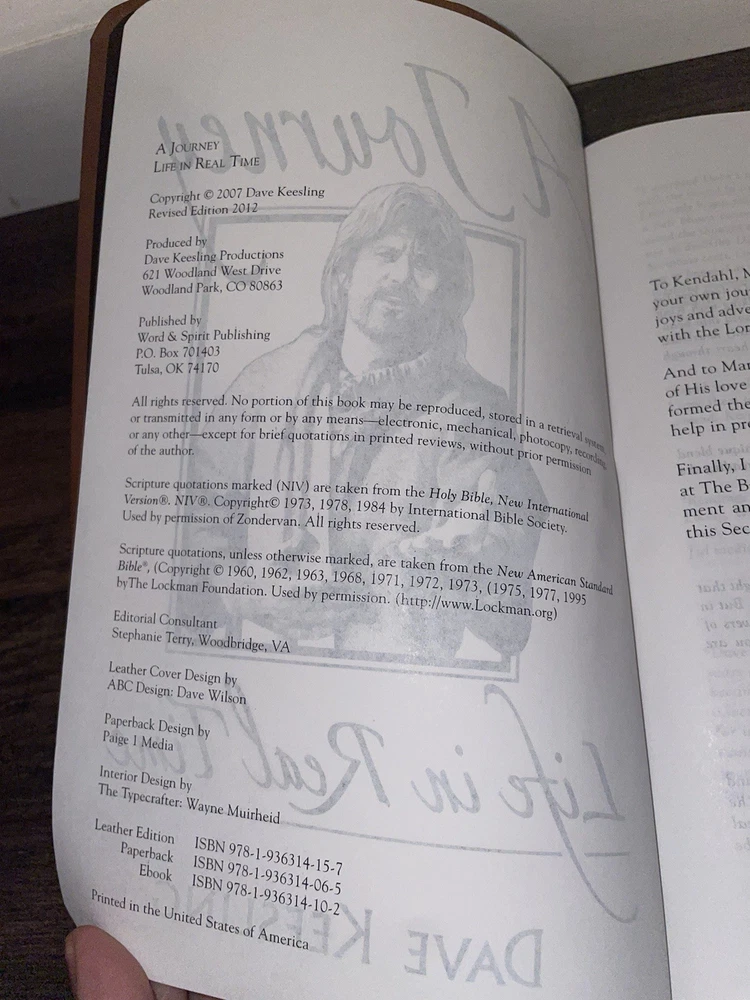 A JOURNEY
LIFE IN REAL TIME
Copyright © 2007 Dave Keesling
Revised Edition 2012
Produced by
Dave Keesling Productions
621 Woodland West Drive
Woodland Park, CO 80863
Published by
Word & Spirit Publishing
P.O. Box 701403
Tulsa, OK 74170
All rights reserved. No portion of this book may be reproduced, stored in a retrieval system
or transmitted in any form or by any means—electronic, mechanical, photocopy, recording,
or any other—except for brief quotations in printed reviews, without prior permission
of the author.
Scripture quotations marked (NIV) are taken from the Holy Bible, New International
Version®. NIV®. Copyright© 1973, 1978, 1984 by International Bible Society.
Used by permission of Zondervan. All rights reserved.
Scripture quotations, unless otherwise marked, are taken from the New American Standard
Bible®, (Copyright © 1960, 1962, 1963, 1968, 1971, 1972, 1973, (1975, 1977, 1995
byThe Lockman Foundation. Used by permission. (http://www.Lockman.org)
Editorial Consultant
Stephanie Terry, Woodbridge, VA
Leather Cover Design by
ABC Design: Dave Wilson
Paperback Design by
Paige 1 Media
Interior Design by
The Typecrafter: Wayne Muirheid
Leather Edition ISBN 978-1-936314-15-7
Paperback ISBN 978-1-936314-06-5
Ebook ISBN 978-1-936314-10-2
Printed in the United States of America
A Journey
Life in Real Time
DAVE KEESLING
To Kendahl,
your own jou
joys and adve
with the Lor
And to Mar
of His love
formed the
help in pr
Finally, I
at The B
ment an
this Sec